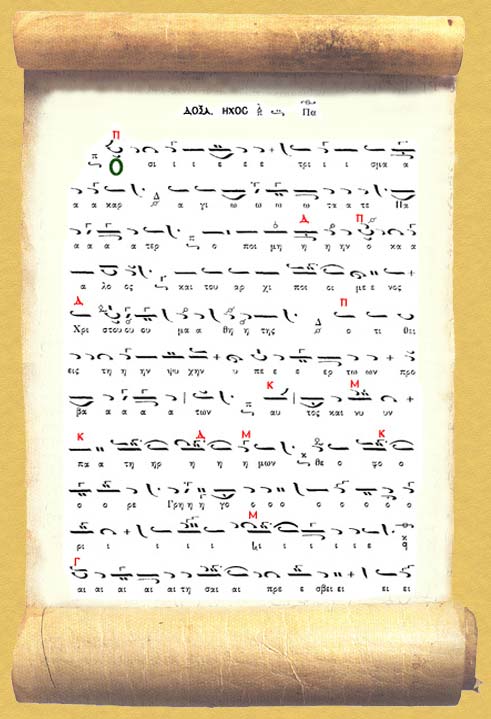 ΔΟΞΑ ΗΧΟΣ Πα
Π
Ο σι ι ι ε ε ε τρι ι ι σμα α
α α καρ Δ α γι ω ω ω ω τα α τε Πα
Δ Π
α α α α τερ π ο ποι μη η η ην ο κα α
α λο ος και του αρ χι ποι οι με ε νος
Δ Π
Χρι στου ου ου μα α θη η της Δ ο τι θει
εις τη η ην ψυ χην υ πε ε ε ερ τω ων προ
Κ Μ
βα α α α α των π αυ τος και νυ υν
Κ Δ Μ Κ
πα α τη ηρ η η η μων κ θε ο φο ο
ο ο ρε Γρη η η γο ο ο ο ο ο ο ο ο ο
Μ
ρι ι ι ι ι ι ι ι ι ε
Γ
αι αι αι αι αι τη σαι αι πρε ε σβει ει ει ει